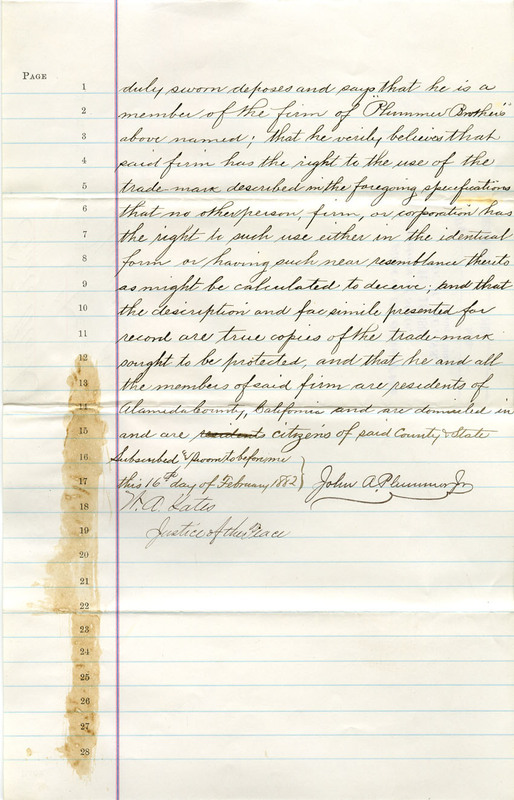 PAGE
1 duly sworn deposes and says that he is a
2 member of the firm of "Plummer Brothers"
3 above named; that he verily believes that
4 said firm has the right to the use of the
5 trade-mark described in the foregoing specifications
6 that no other person, firm, or corporation has
7 the right to such use either in the identical
8 form or having such near resemblance thereto
9 as might be calculated to deceive; and that
10 the description and fac simile presented for
11 record are true copies of the trade-mark
12 sought to be protected, and that he and all
13 the members of said firm are residents of
14 Alameda County, California and are domiciled in
15 and are residents citizens of said County & State
16 Subscribed & sworn to before me
17 this 16th day of February 1882 } John A. Plummer Jr
18 W. A. Yates
19 Justice of the Peace
20
21
22
23
24
25
26
27
28